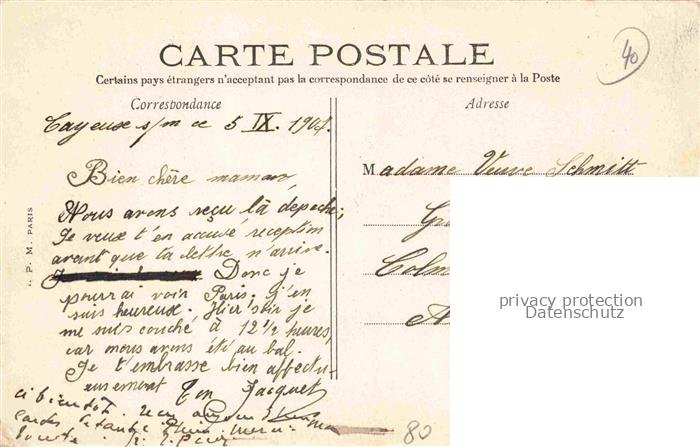 40
CARTE POSTALE
Certains pays étrangers n'acceptant pas la correspondance de ce côté se renseigner à la Poste
Correspondance
Adresse
Cayeux s/m ce 5 IX. 1904.
Bien chère maman,
Madame Veuve Schmitt
Nous avons reçu la depeche;
Je veux t'en accusé réception
avant que ta lettre n'arrive.
Donc je
Colm
pourrai voir Paris; j'en
suis heureuse. Hier soir je
me suis couché à 12 1/2 heures,
car nous avons été au bal.
Je t'embrasse bien affectu-
eusement Ton Jacquet
à bientôt.
80
. P. M. PARIS
privacy protection
Datenschutz